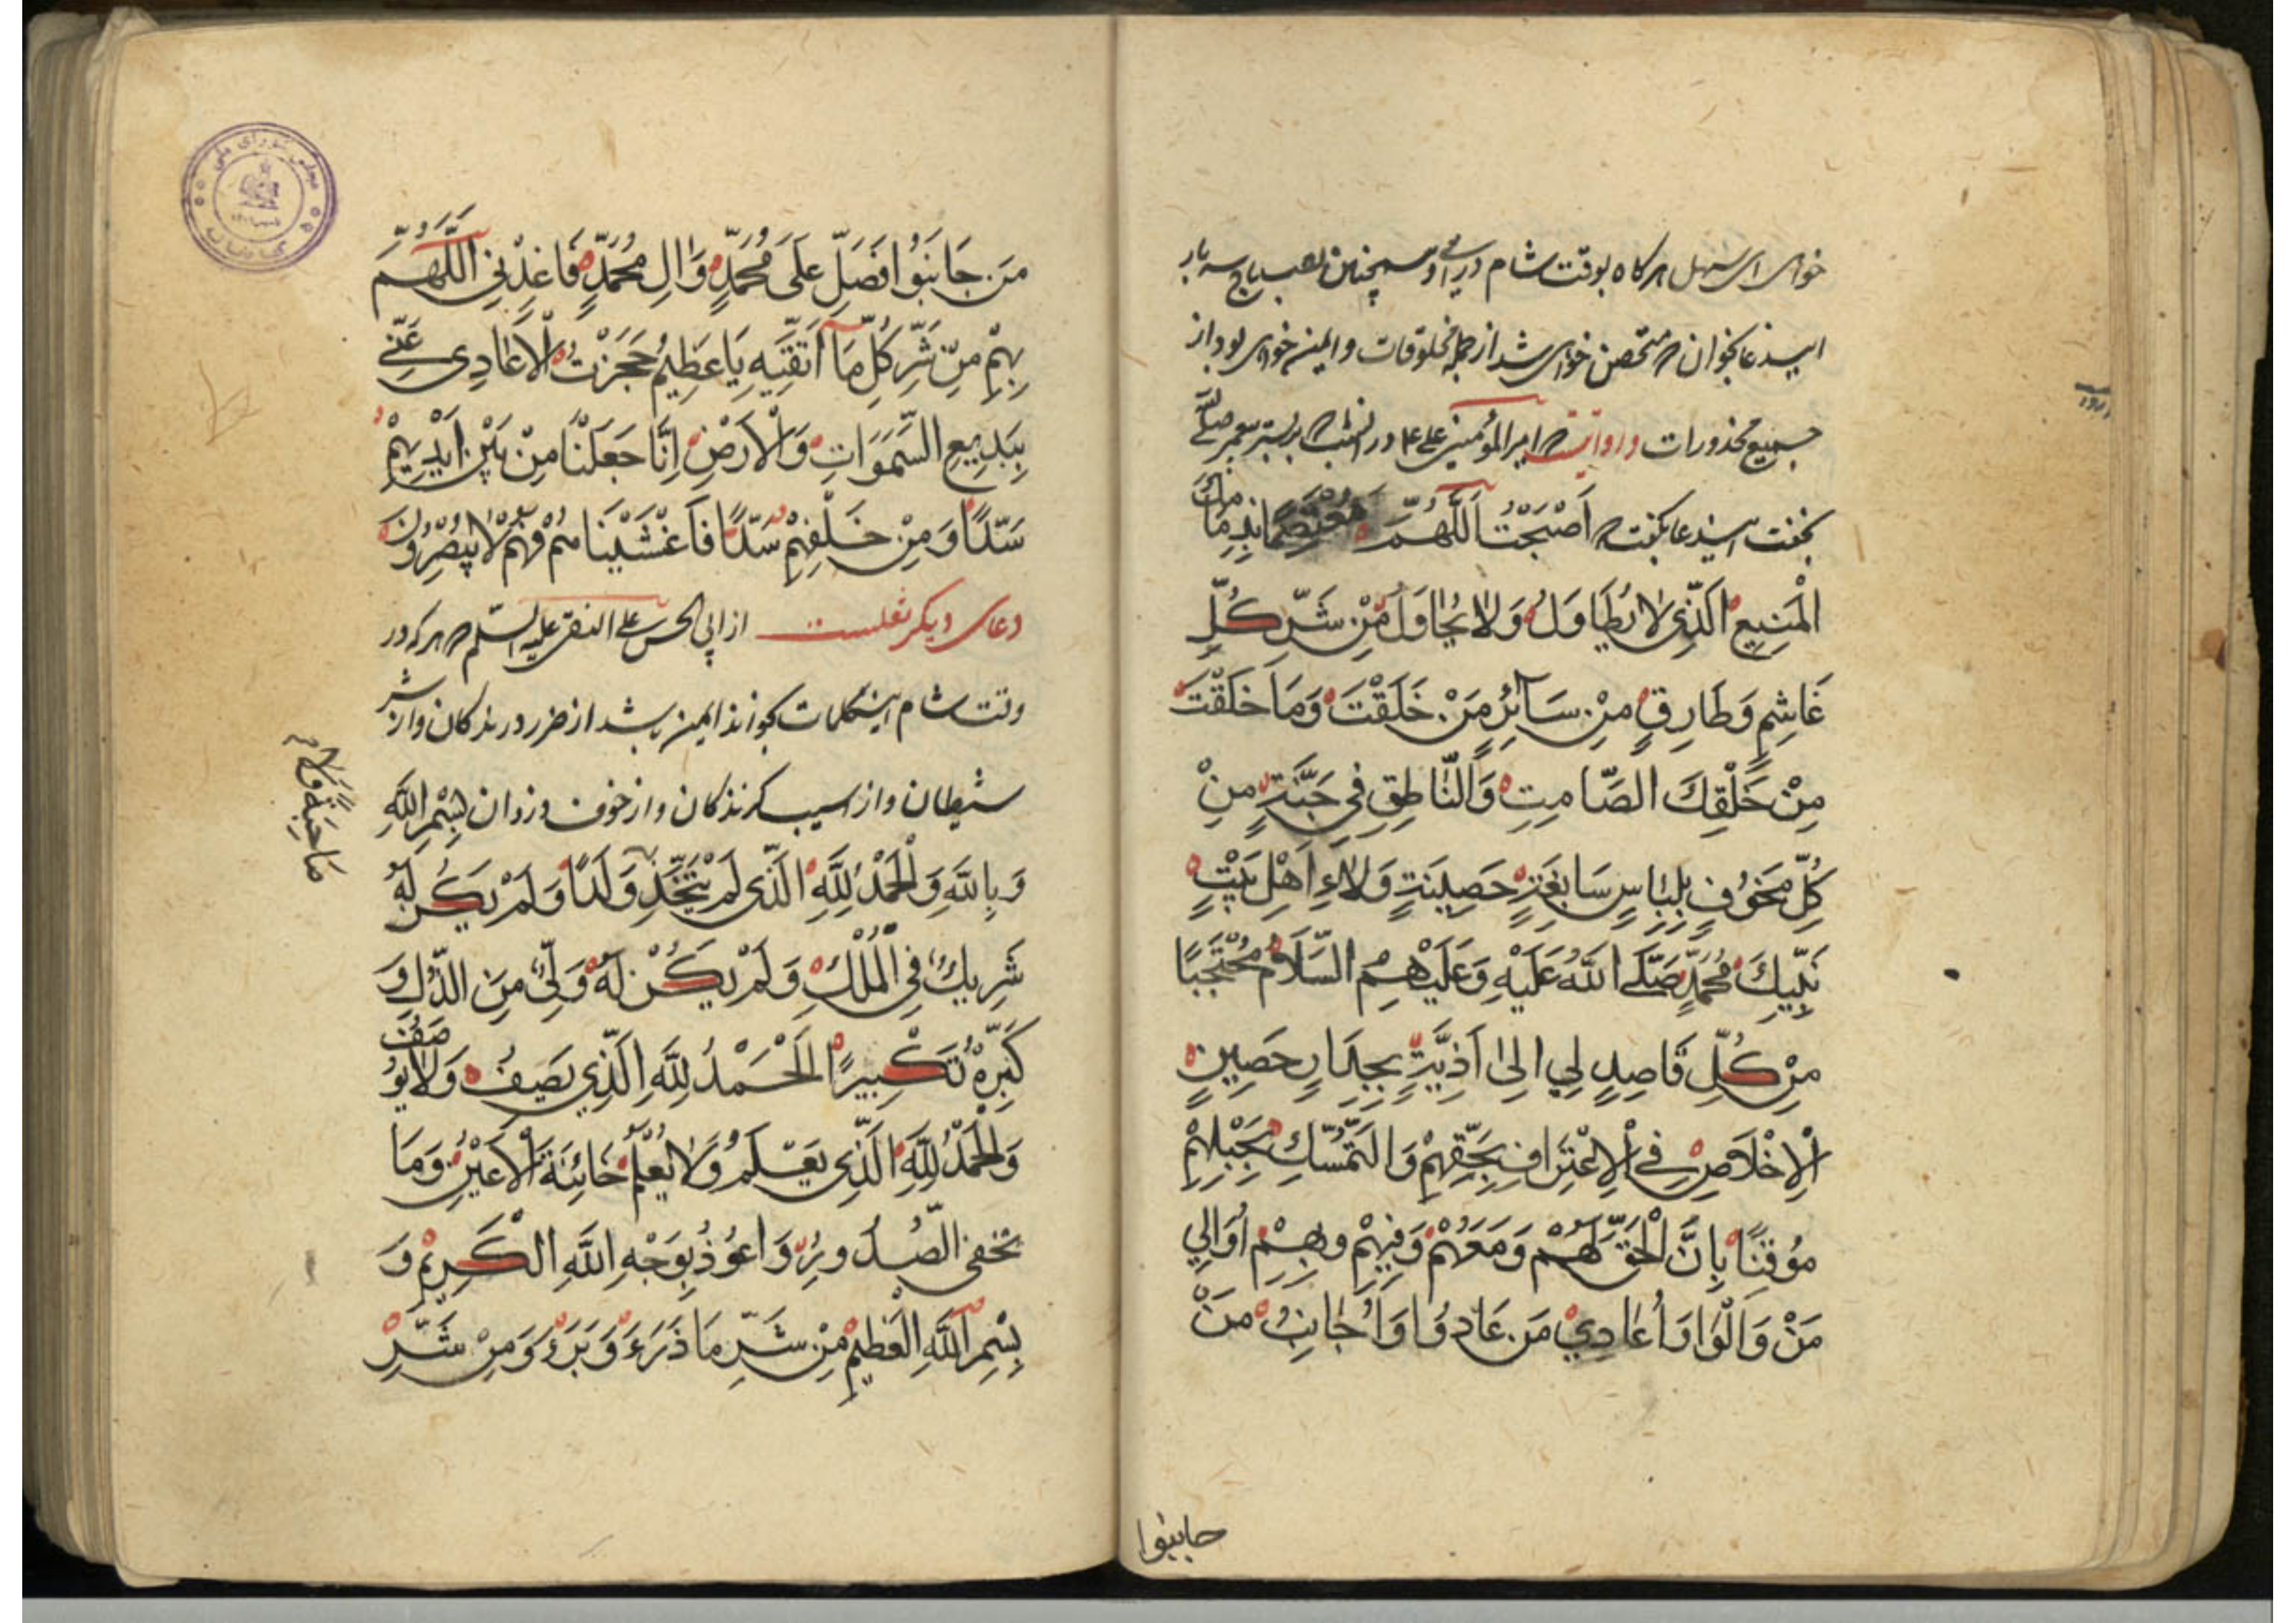 خواهی ای سهل هرگاه بوقت شام درآئی و همچنین بصباح سه بار
این دعا بخوان که متحصن خواهی شد از جمله مخلوقات و ایمن خواهی بود از
جمیع محذورات و روایتست که امیرالمؤمنین علی ع در آن شب که بر بستر پیغمبر صلی الله
بخفت این دعا بگفت که اَصْبَحْتُ اَللّٰهُمَّ مُعْتَصِمًا بِذِمَامِكَ
الْمَنِيعِ الَّذِي لَا يُطَاوَلُ وَلَا يُحَاوَلُ مِنْ شَرِّ كُلِّ
غَاشِمٍ وَطَارِقٍ مِنْ سَآئِرِ مَنْ خَلَقْتَ وَمَا خَلَقْتَ
مِنْ خَلْقِكَ الصَّامِتِ وَالنَّاطِقِ فِي جَنَّةٍ مِنْ
كُلِّ مَخُوْفٍ بِلِبَاسٍ سَابِغَةٍ حَصِينَةٍ وَلَاءِ اَهْلِ بَيْتِ
نَبِيِّكَ مُحَمَّدٍ صَلَّى اللّٰهُ عَلَيْهِ وَعَلَيْهِمُ السَّلَامُ مُحْتَجِبًا
مِنْ كُلِّ قَاصِدٍ لِي اِلىٰ اَذِيَّةٍ بِجِدَارٍ حَصِينٍ
اَلْاِخْلَاصِ فِي الْاِعْتِرَافِ بِحَقِّهِمْ وَالتَّمَسُّكِ بِحَبْلِهِمْ
مُوْقِنًا بِاَنَّ الْحَقَّ لَهُمْ وَمَعَهُمْ وَفِيهِمْ وبِهِمْ اُوَالِي
مَنْ وَالَوْا وَاُعَادِيْ مَنْ عَادَوْا وَاُجَانِبُ مَنْ
جانبوا
مَنْ جَانَبُوْا فَصَلِّ عَلَى مُحَمَّدٍ وَاٰلِ مُحَمَّدٍ فَاَعِذْنِي اَللّٰهُمَّ
بِهِمْ مِنْ شَرِّ كُلِّ مَا اَتَّقِيْهِ يَا عَظِيْمُ حَجَزْتُ الْاَعَادِىَ عَنِّي
بِبَدِيعِ السَّمٰوَاتِ وَالْاَرْضِ اِنَّا جَعَلْنَا مِنْ بَيْنِ اَيْدِيهِمْ
سَدًّا وَمِنْ خَلْفِهِمْ سَدًّا فَاَغْشَيْنَاهُمْ فَهُمْ لَا يُبْصِرُوْنَ
دعای دیگر نقلست از ابی الحسن علی النقی علیه السلم که هر که در
وقت شام این کلمات بگوید ایمن باشد از ضرر درندگان و از شر
شیطان و از آسیب گزندگان و از خوف دزدان بِسْمِ اللّٰهِ
وَبِاللّٰهِ وَالْحَمْدُ لِلّٰهِ الَّذِي لَمْ يَتَّخِذْ وَلَدًا وَلَمْ يَكُنْ لَهُ
صَاحِبَةً وَلَا
شَرِيكٌ فِي الْمُلْكِ وَلَمْ يَكُنْ لَهُ وَلِيٌّ مِنَ الذُّلِّ وَ
كَبِّرْهُ تَكْبِيرًا اَلْحَمْدُ لِلّٰهِ الَّذِي يَصِفُ وَلَا يُوْصَفُ
وَالْحَمْدُ لِلّٰهِ الَّذِي يَعْلَمُ وَلَا يُعْلَمُ خَائِنَةَ الْاَعْيُنِ وَمَا
تخْفِي الصُّدُورُ وَاَعُوْذُ بِوَجْهِ اللّٰهِ الْكَرِيْمِ وَ
بِسْمِ اللّٰهِ الْعَظِيْمِ مِنْ شَرِّ مَا ذَرَءَ وَبَرَءَ وَمِنْ شَرِّ